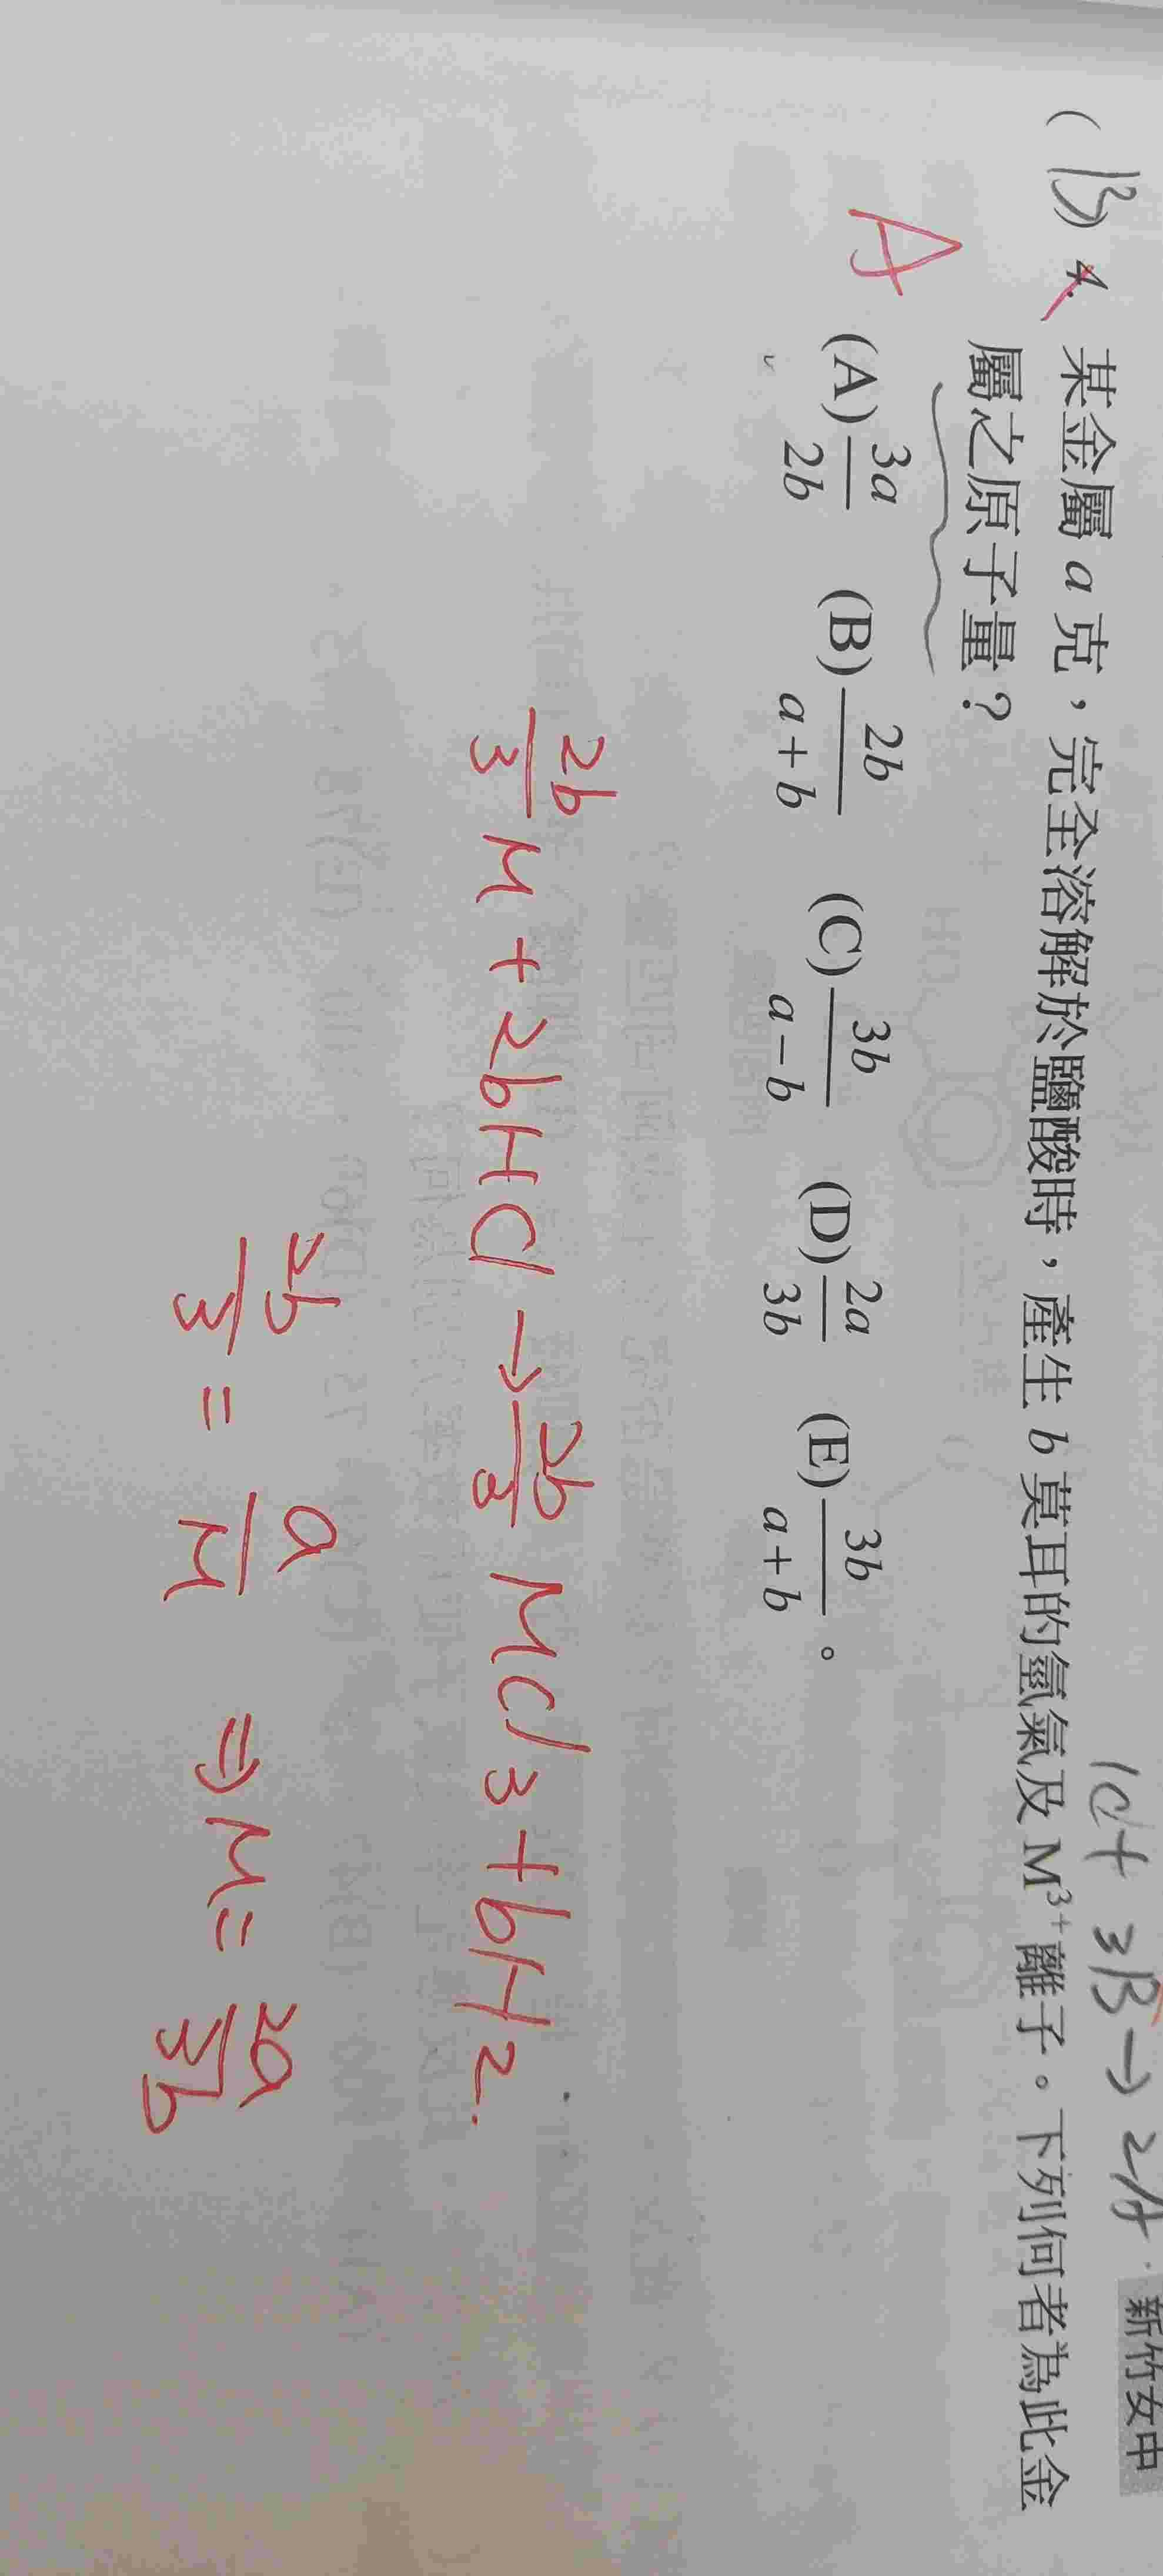 1a+ 3B→2A
新竹女中
(B) 4. 某金屬 a 克，完全溶解於鹽酸時，產生 b 莫耳的氫氣及 M³⁺離子。下列何者為此金
屬之原子量？
A
(A) 3a/2b (B) 2b/(a+b) (C) 3b/(a−b) (D) 2a/3b (E) 3b/(a+b) 。
2b/3 M + 2bHCl → 2b/3 MCl3 + bH2.
2b/3 = a/M ⇒ M = 2a/3b